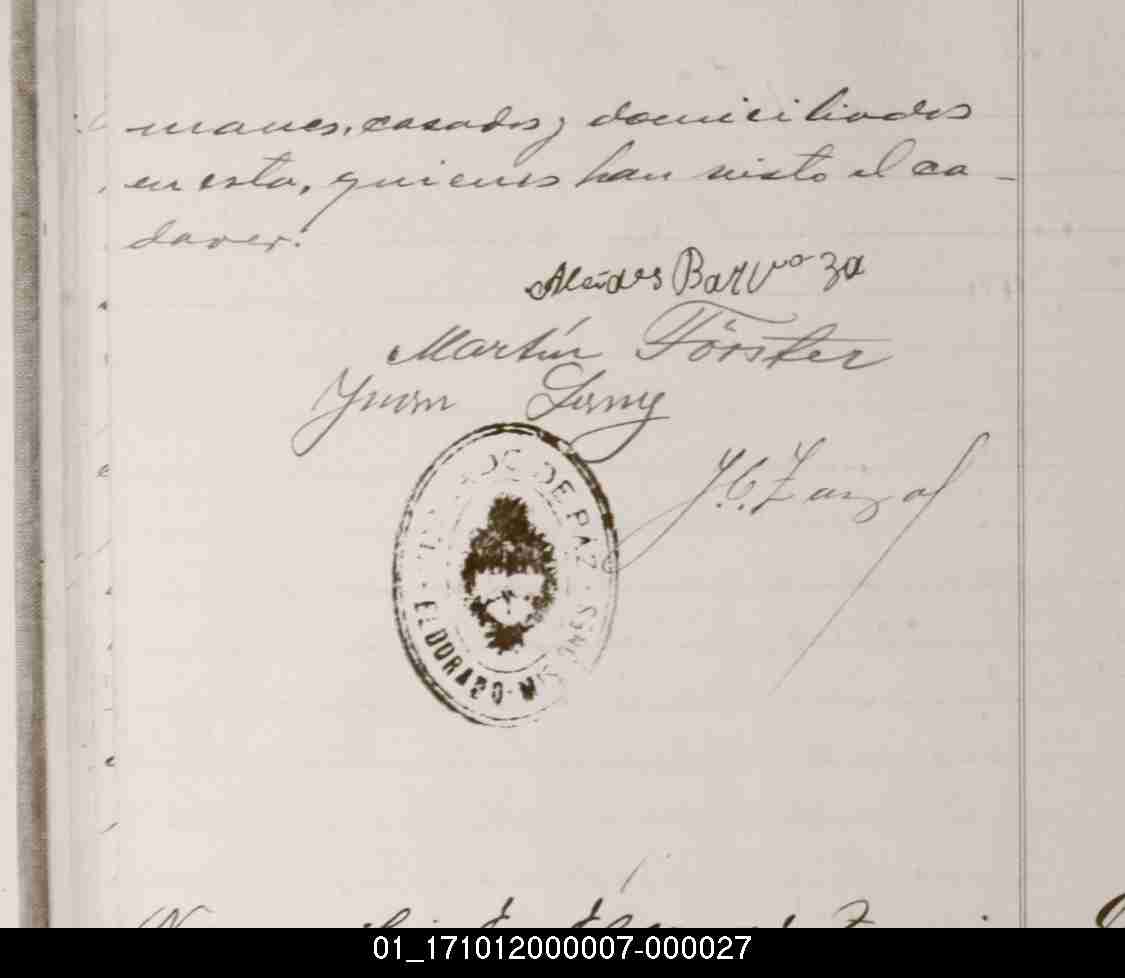 manes, casados y domiciliados
en esta, quienes han visto el ca-
daver.
Alcides Barvoza
Martín Förster
Juan Lamy
J. C. Zarzal
DE PAZ
ELDORADO · MISIONES
01_171012000007-000027